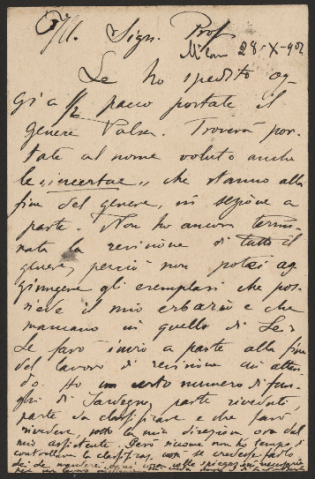 Ill. Sign. Prof
Milano 28-X-902
Le ho spedito og-
gi a ½ pacco postale il
genere Valsa. Troverà por-
tate al nome voluto anche
le "incertae" che stanno alla
fine del genere, in sezione a
parte. Non ho ancora termi-
nata la revisione di tutto il
genere, perciò non potei ag
giungere gli esemplari che pos-
siede il mio erbario e che
mancano in quello di Lei
Le farò invio a parte alla fine
del lavoro di revisione cui atten-
do. Ho un certo numero di fun-
ghi di Sardegna, parte riveduti,
parte da classificare e che farò
rivedere, sotto la mia direzione ora dal
mio assistente. Però siccome non ho tempo di
controllare la classificaz. così se credesse farlo